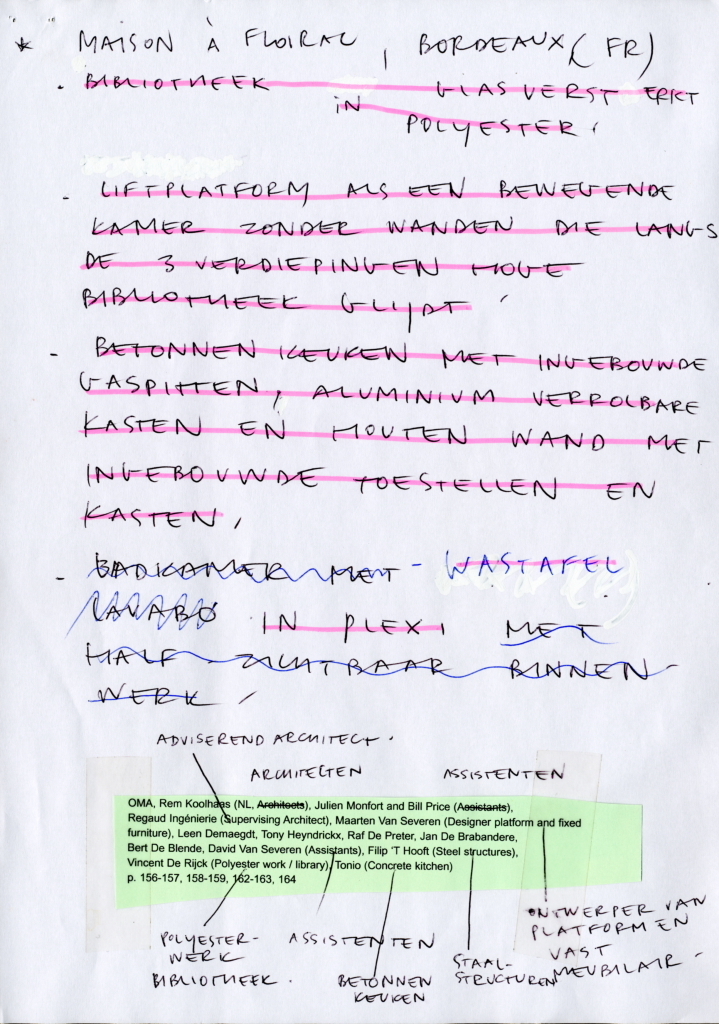 * MAISON À FLOIRAC, BORDEAUX (FR)
- BIBLIOTHEEK IN GLASVERSTERKT
POLYESTER.
- LIFTPLATFORM ALS EEN BEWEGENDE
KAMER ZONDER WANDEN DIE LANGS
DE 3 VERDIEPINGEN HOGE
BIBLIOTHEEK GLIJDT.
- BETONNEN KEUKEN MET INGEBOUWDE
GASPITTEN, ALUMINIUM VERROLBARE
KASTEN EN HOUTEN WAND MET
INGEBOUWDE TOESTELLEN EN
KASTEN.
- BADKAMER MET - WASTAFEL
LAVABO IN PLEXI MET
HALF ZICHTBAAR BINNEN-
WERK.
ADVISEREND ARCHITECT.
ARCHITECTEN ASSISTENTEN
OMA, Rem Koolhaas (NL, Architects), Julien Monfort and Bill Price (Assistants),
Regaud Ingénierie (Supervising Architect), Maarten Van Severen (Designer platform and fixed
furniture), Leen Demaegdt, Tony Heyndrickx, Raf De Preter, Jan De Brabandere,
Bert De Blende, David Van Severen (Assistants), Filip 'T Hooft (Steel structures),
Vincent De Rijck (Polyester work / library), Tonio (Concrete kitchen)
p. 156-157, 158-159, 162-163, 164
POLYESTER-
WERK
BIBLIOTHEEK.
ASSISTENTEN
BETONNEN
KEUKEN
STAAL-
STRUCTUREN
ONTWERPER VAN
PLATFORM EN
VAST
MEUBILAIR.